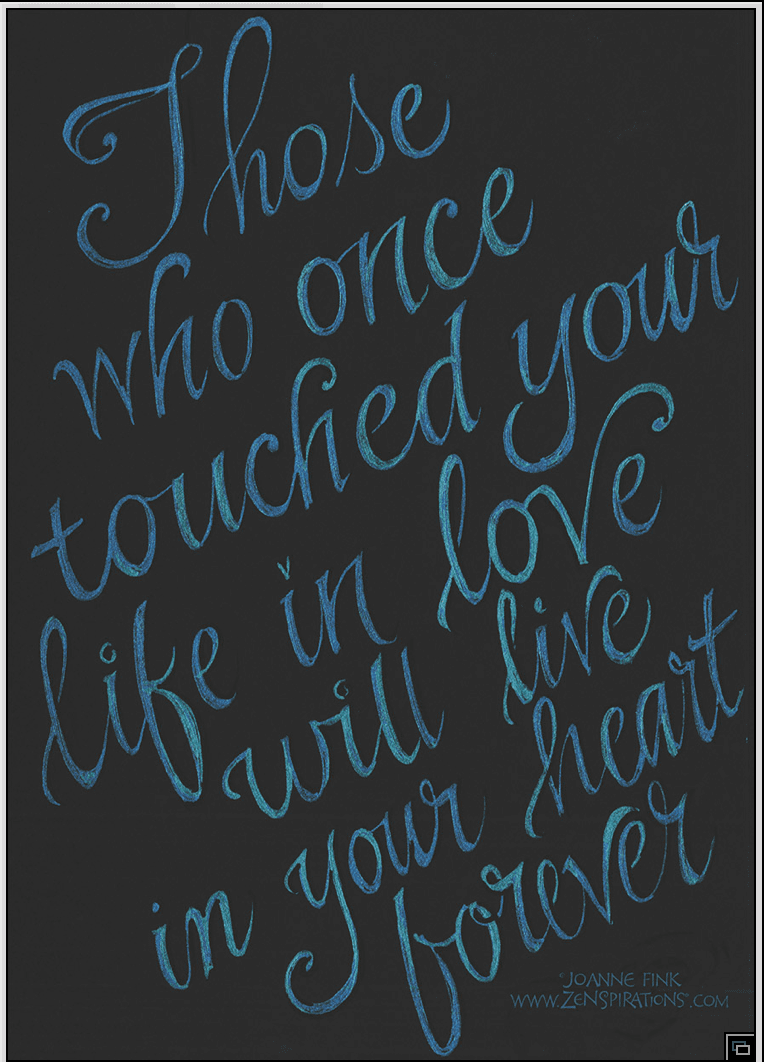 Those
who once
touched your
life in love
will live
in your heart
forever
©JOANNE FINK
WWW.ZENSPIRATIONS.COM